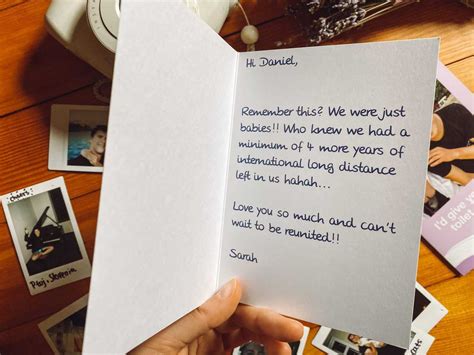 Hi Daniel,
Remember this? We were just
babies!! Who knew we had a
minimum of 4 more years of
international long distance
left in us hahah...
Love you so much and can't
wait to be reunited!!
Sarah
Ptoj, Slovenia
I'd give y